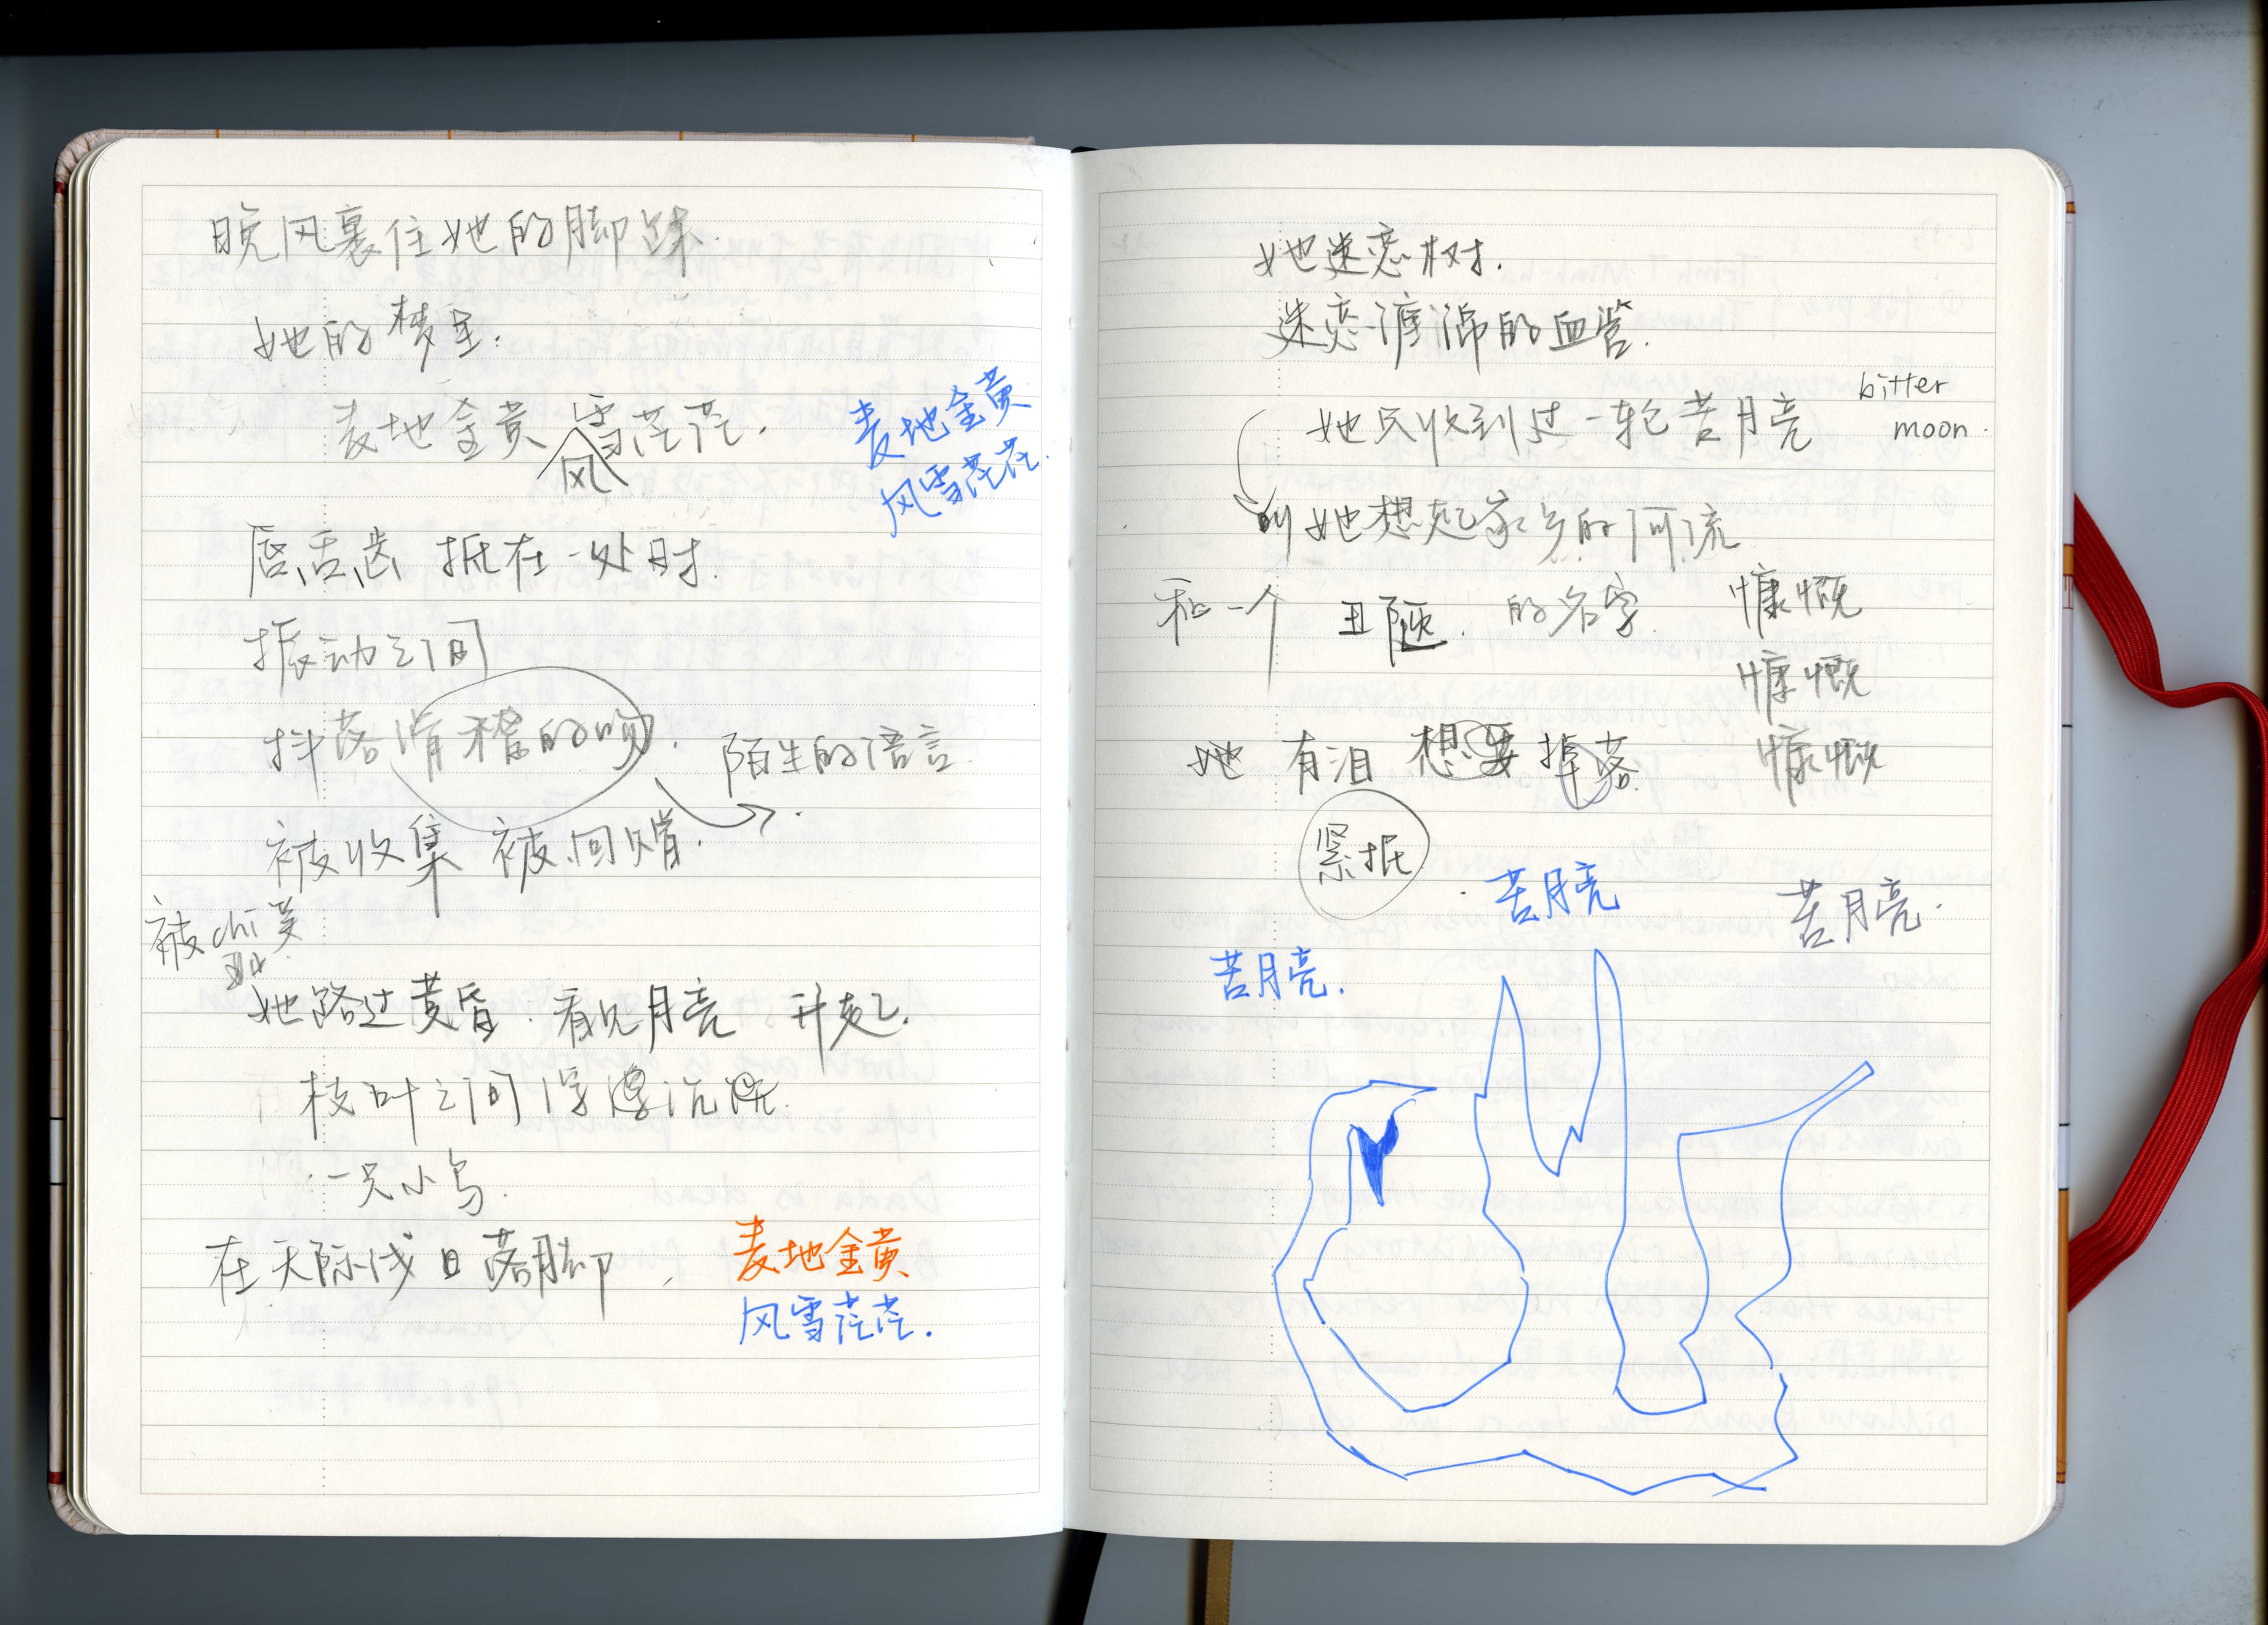 晚风裹住她的脚踝.
她的梦呈.
麦地金黄 风雪茫茫.
麦地金黄
风雪茫茫.
唇、舌、齿、抵在一处时.
振动之间
抖落滑稽的吻.
陌生的语言.
被收集 被回赠.
被chi笑
耻
她路过黄昏.看见月亮 升起.
枝叶之间浮沉
一只小鸟.
在天际浅日落脚.
麦地金黄
风雪茫茫.
她迷恋树.
迷恋 的血管.
她只收到过一轮苦月亮
bitter
moon.
叫她想起家乡的河流
和一个 丑陋. 的名字.
慷慨
慷慨
慷慨
她 有泪 想要 掉落.
紧抿
苦月亮
苦月亮.
苦月亮.